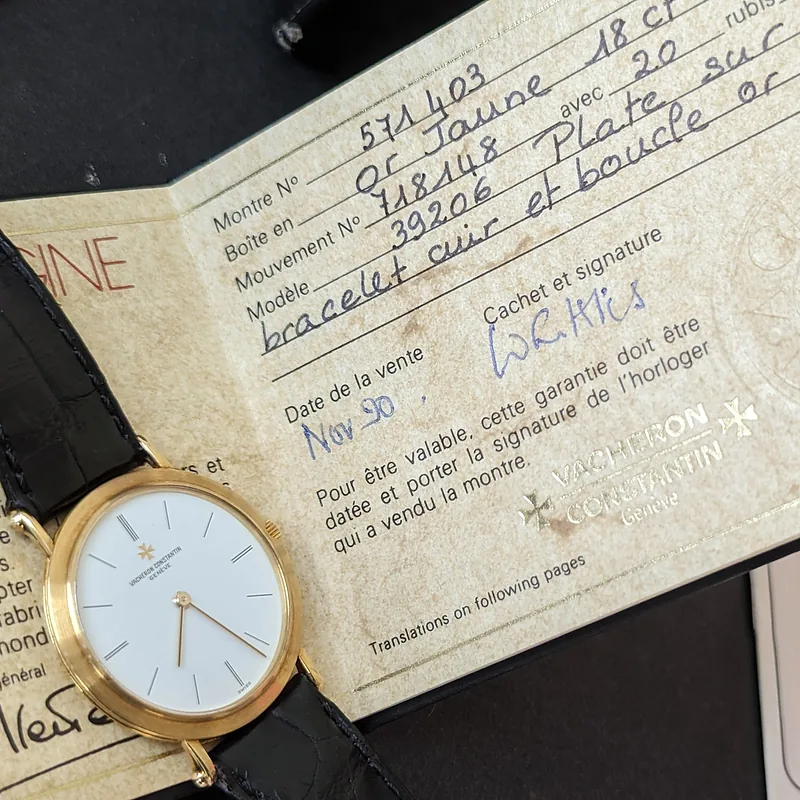 GINE
Montre No 571403
Boîte en or Jaune 18 ct
Mouvement No 718148 avec 20 rubis
Modèle 39206 Plate sur
bracelet cuir et boucle or
Date de la vente
Nov 90.
Cachet et signature
Pour être valable, cette garantie doit être
datée et porter la signature de l'horloger
qui a vendu la montre.
VACHERON
CONSTANTIN
Genève
Translations on following pages
rs et
pter
fabri
mond
général
VACHERON CONSTANTIN
GENÈVE
SWISS